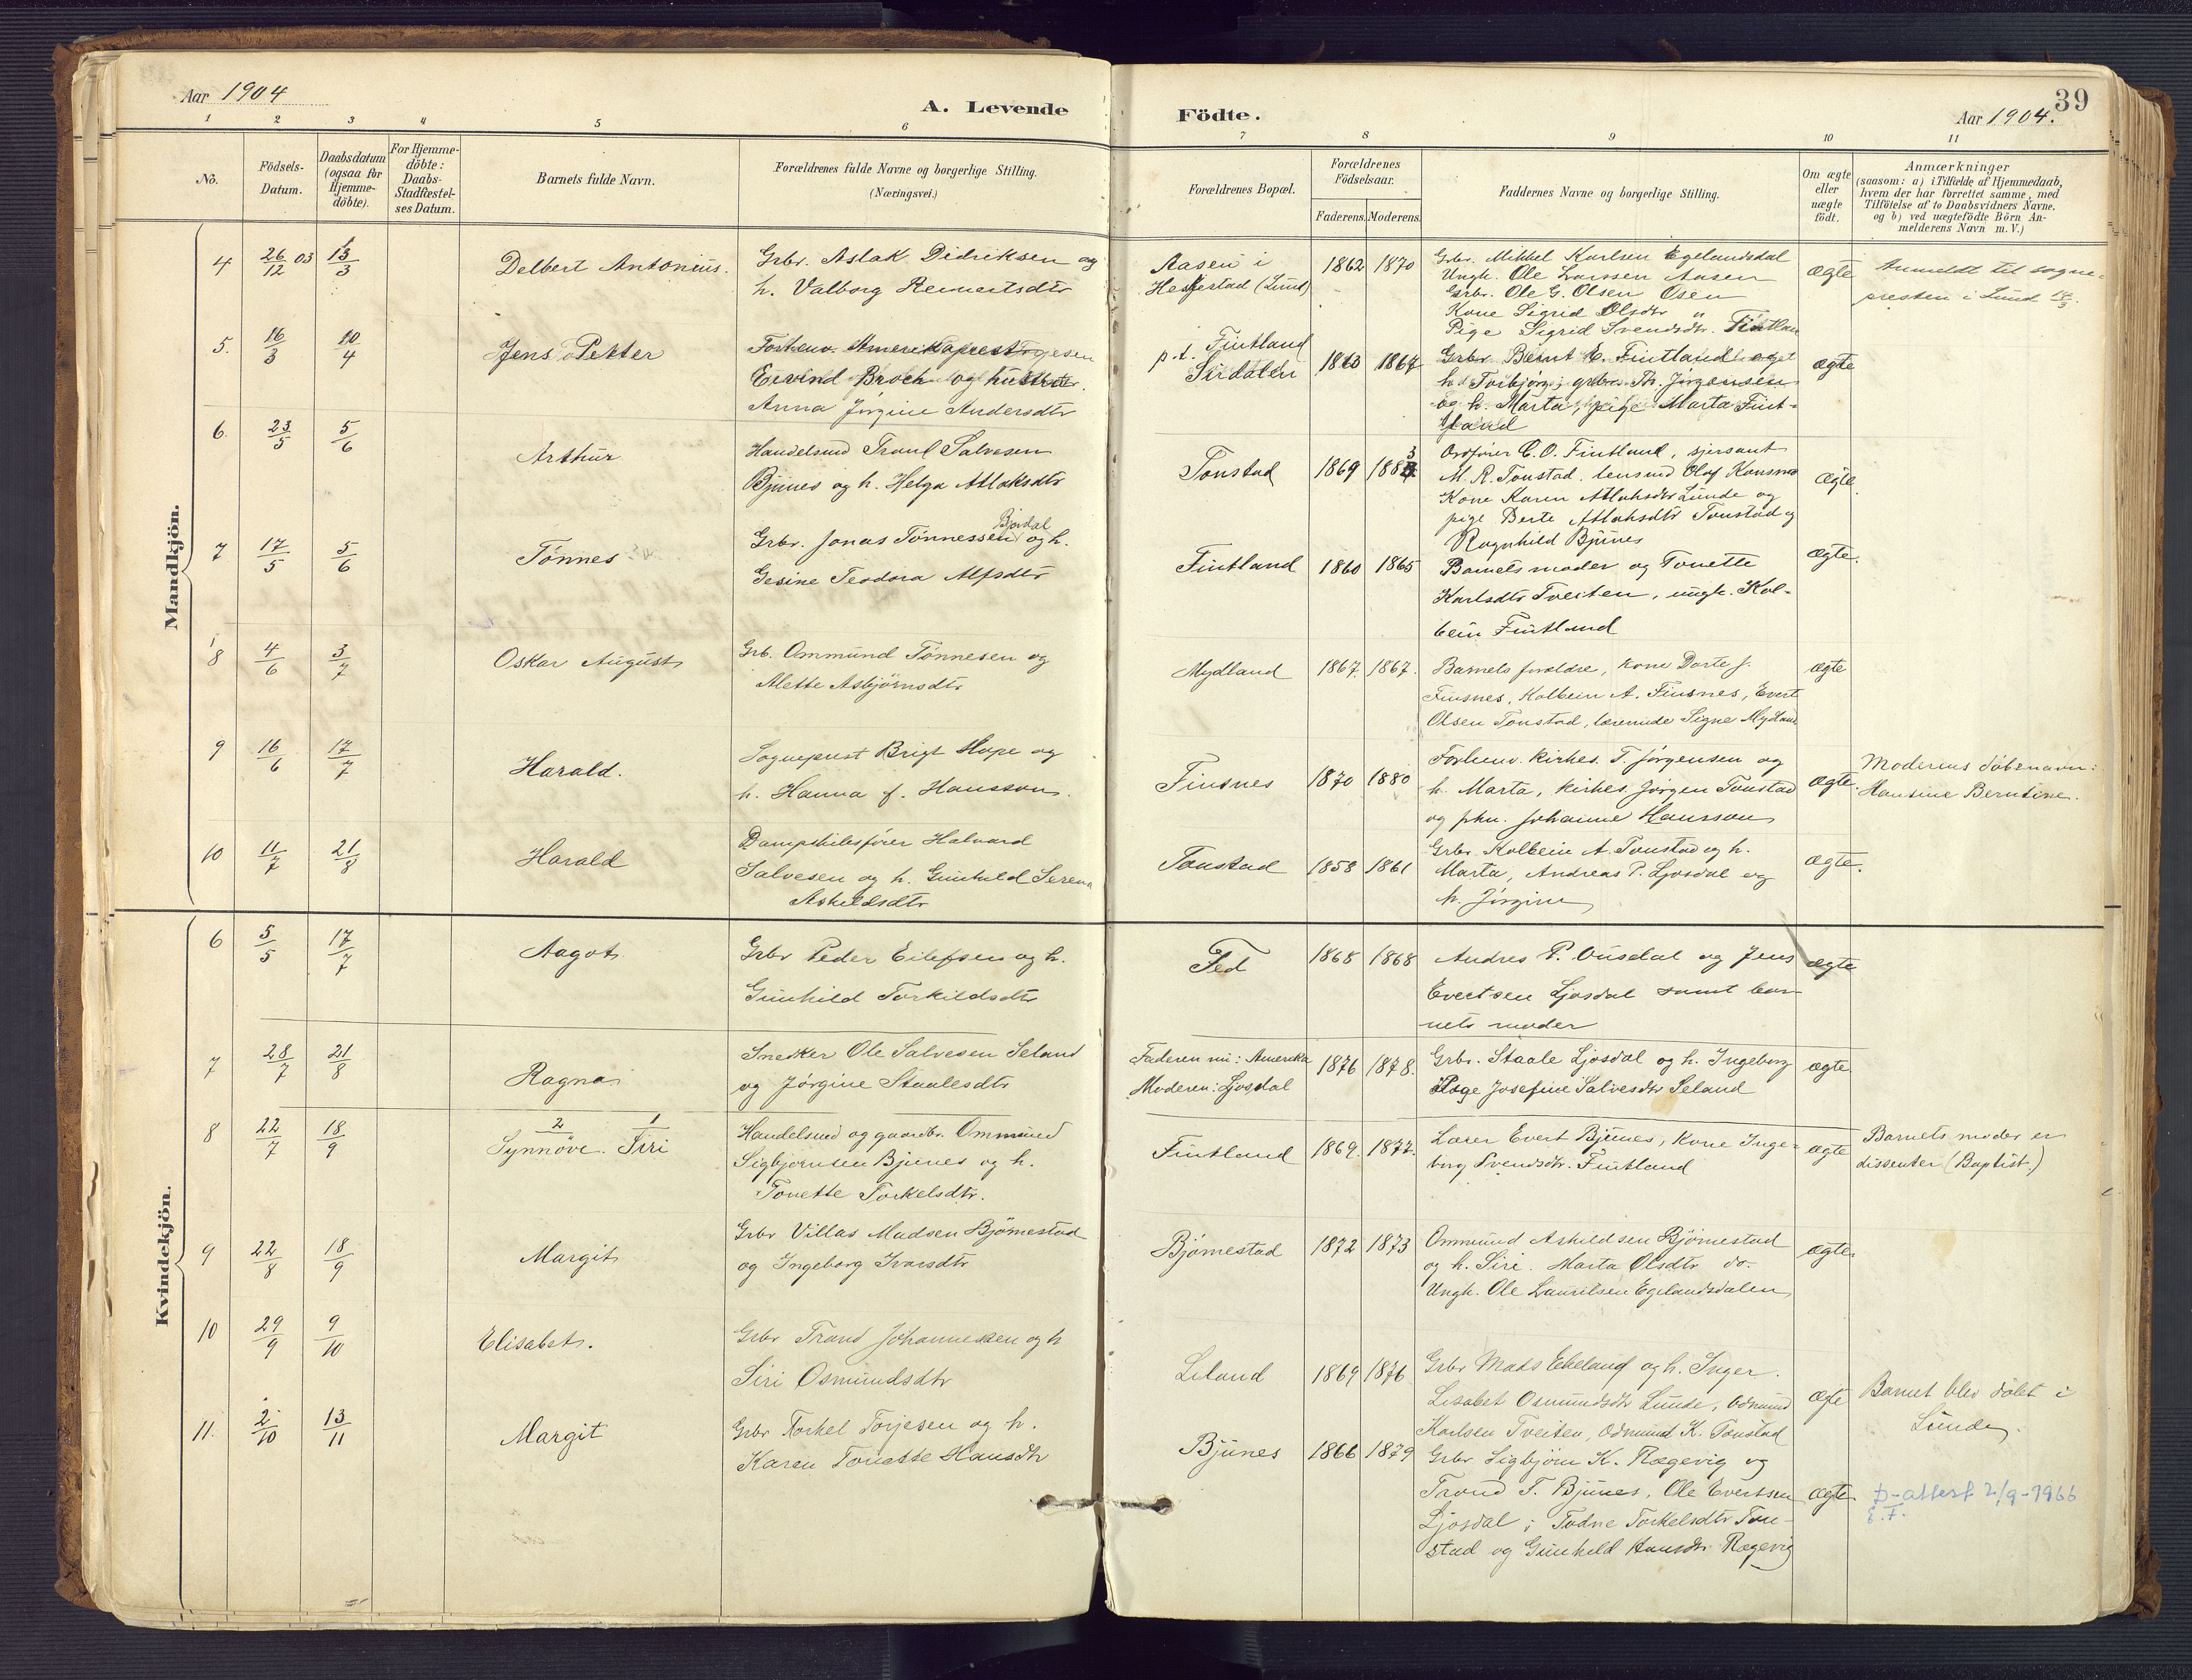 Aar 1904
A. Levende
Födte.
Aar 1904.
39
1 2 3 4 5 6 7 8 9 10 11
No.
Födsels-Datum.
Daabsdatum (ogsaa for Hjemme-döbte).
For Hjemme-döbte: Daabs-Stadfæstel-ses Datum.
Barnets fulde Navn.
Forældrenes fulde Navne og borgerlige Stilling.
(Næringsvei.)
Forældrenes Bopæl.
Forældrenes Födselsaar.
Faderens. Moderens.
Faddernes Navne og borgerlige Stilling.
Om ægte eller uægte födt.
Anmærkninger
(saasom: a) i Tilfælde af Hjemmedaab,
hvem der har forrettet samme, med
Tilföielse af to Daabsvidners Navne.
og b) ved uægtefödte Börn An-
melderens Navn m. V.)
Mandkjön.
4 26/12 03 13/3 Delbert Antonius.
Grbr. Aslak Didriksen og
h. Valborg Reinertsdtr
Aasen i
Heskestad (Lund)
1862 1870
Grbr. Mikkel Karlsen Egelandsdal
Ungk. Ole Larssen Aasen
Grbr. Ole G. Olsen Osen
Kone Sigrid Olsdtr "
Pige Sigrid Svendsdtr. Fintlan
ægte
Anmeldt til sogne-
presten i Lund
5. 16/3 10/4 Jens Petter
Eivind Broch og hustru
Anna Jørgine Andersdtr
p.t. Fintland
Sirdalen
1863 1867
Grbr. Bernt E. Fintland
h. Torbjørg; grbr. Th. Jørgensen
og h. Marta, pige Marta Fint-
land
ægte
6. 23/5 5/6 Arthur
Handelsmd Traul Salvesen
Bjunes og h. Helga Atlaksdtr
Tonstad
1869 1883
Ordfører C. O. Fintland, sjersant
M. R. Tonstad. lensmd Olaf Konsmo
Kone Karen Atlaksdtr Lunde og
pige Berte Atlaksdtr Tonstad og
Ragnhild Bjunes
ægte.
7 17/5 5/6 Tönnes
Grbr. Jonas Tönnessen Bjrdal og h.
Gesine Teodora Alfsdtr
Fintland
1860 1865
Barnets moder og Tonette
Karlsdtr Tveiten, ungk. Kol-
bein Fintland
ægte.
8 4/6 3/7 Oskar August
Grb. Ommund Tönnesen og
Alette Asbjörnsdtr
Mydland
1867. 1867.
Barnets foraldre, kone Dorte J.
Finsnes, Kolbein A. Finsnes, Evert
Olsen Tonstad, lærerinde Signe Mydland
ægte
9 16/6 17/7 Harald.
Sogneprest Brigt Hope og
h. Hanna f. Hansson.
Finsnes
1870 1880
Forhenv. kirkes. T. Jørgensen og
h. Marta, kirkes. Jörgen Tonstad
og frkn. Johanne Hansson
ægte.
Moderens döbenavn:
Hansine Berntine.
10 11/7 21/8 Harald
Dampskibsfører Halvard
Salvesen og h. Gunhild Serena
Askildsdtr
Tonstad
1858 1861
Grbr. Kolbein A. Tonstad og h.
Marta, Andreas P. Ljosdal og
h. Jörgine
ægte.
Kvindekjön.
6 5/5 17/7 Aagot
Grbr Peder Eilefsen og h.
Gunhild Torkildsdtr
Fed
1868 1868
Andres P. Ousdal og Jens
Evertsen Ljosdal samt bar-
nets moder
ægte
7 28/7 21/8 Ragna
Snedker Ole Salvesen Seland
og Jörgine Staalesdtr
Faderen nu: Amerika
Moderen: Ljosdal
1876 1878.
Grbr. Staale Ljosdal og h. Ingeborg
Pige Josefine Salvesdtr Seland
ægte.
8 22/7 18/9 2 1
Synnöve. Siri
Handelsmd og gaardbr. Ommund
Sigbjørnsen Bjunes og h.
Tonette Torkelsdtr.
Fintland
1869. 1872.
Lærer Evert Bjunes, Kone Inge-
borg Svendsdtr. Fintland
ægte
Barnets moder er
dissenter (Baptist.)
9 22/8 18/9 Margit
Grbr Villas Madsen Björnestad
og Ingeborg Ivarsdtr
Björnestad
1872 1873
Ommund Askildsen Björnestad
og h. Siri. Marta Olsdtr do.
Ungk. Ole Lauritsen Egelandsdalen
ægte.
10 29/9 9/10 Elisabet.
Grbr Trond Johannessen og h
Siri Osmundsdtr
Liland
1869 1876
Grbr Mads Eheland og h. Inger.
Lisabet Osmundsdtr Lunde, Odmund
Karlsen Tveiten, Odmund K. Tonstad
ægte
Barnet blev döbt i
Lunde.
11. 2/10 13/11 Margit
Grbr Torkel Torjesen og h.
Karen Tonette Hansdtr
Bjunes
1866 1879
Grbr Sigbjörn K. Rægevig og
Trond T. Bjunes, Ole Evertsen
Ljosdal; Todne Torkelsdtr Ton-
stad og Gunhild Hansdtr Rægevig
ægte.
p-attest 2/9-1966
E.F.